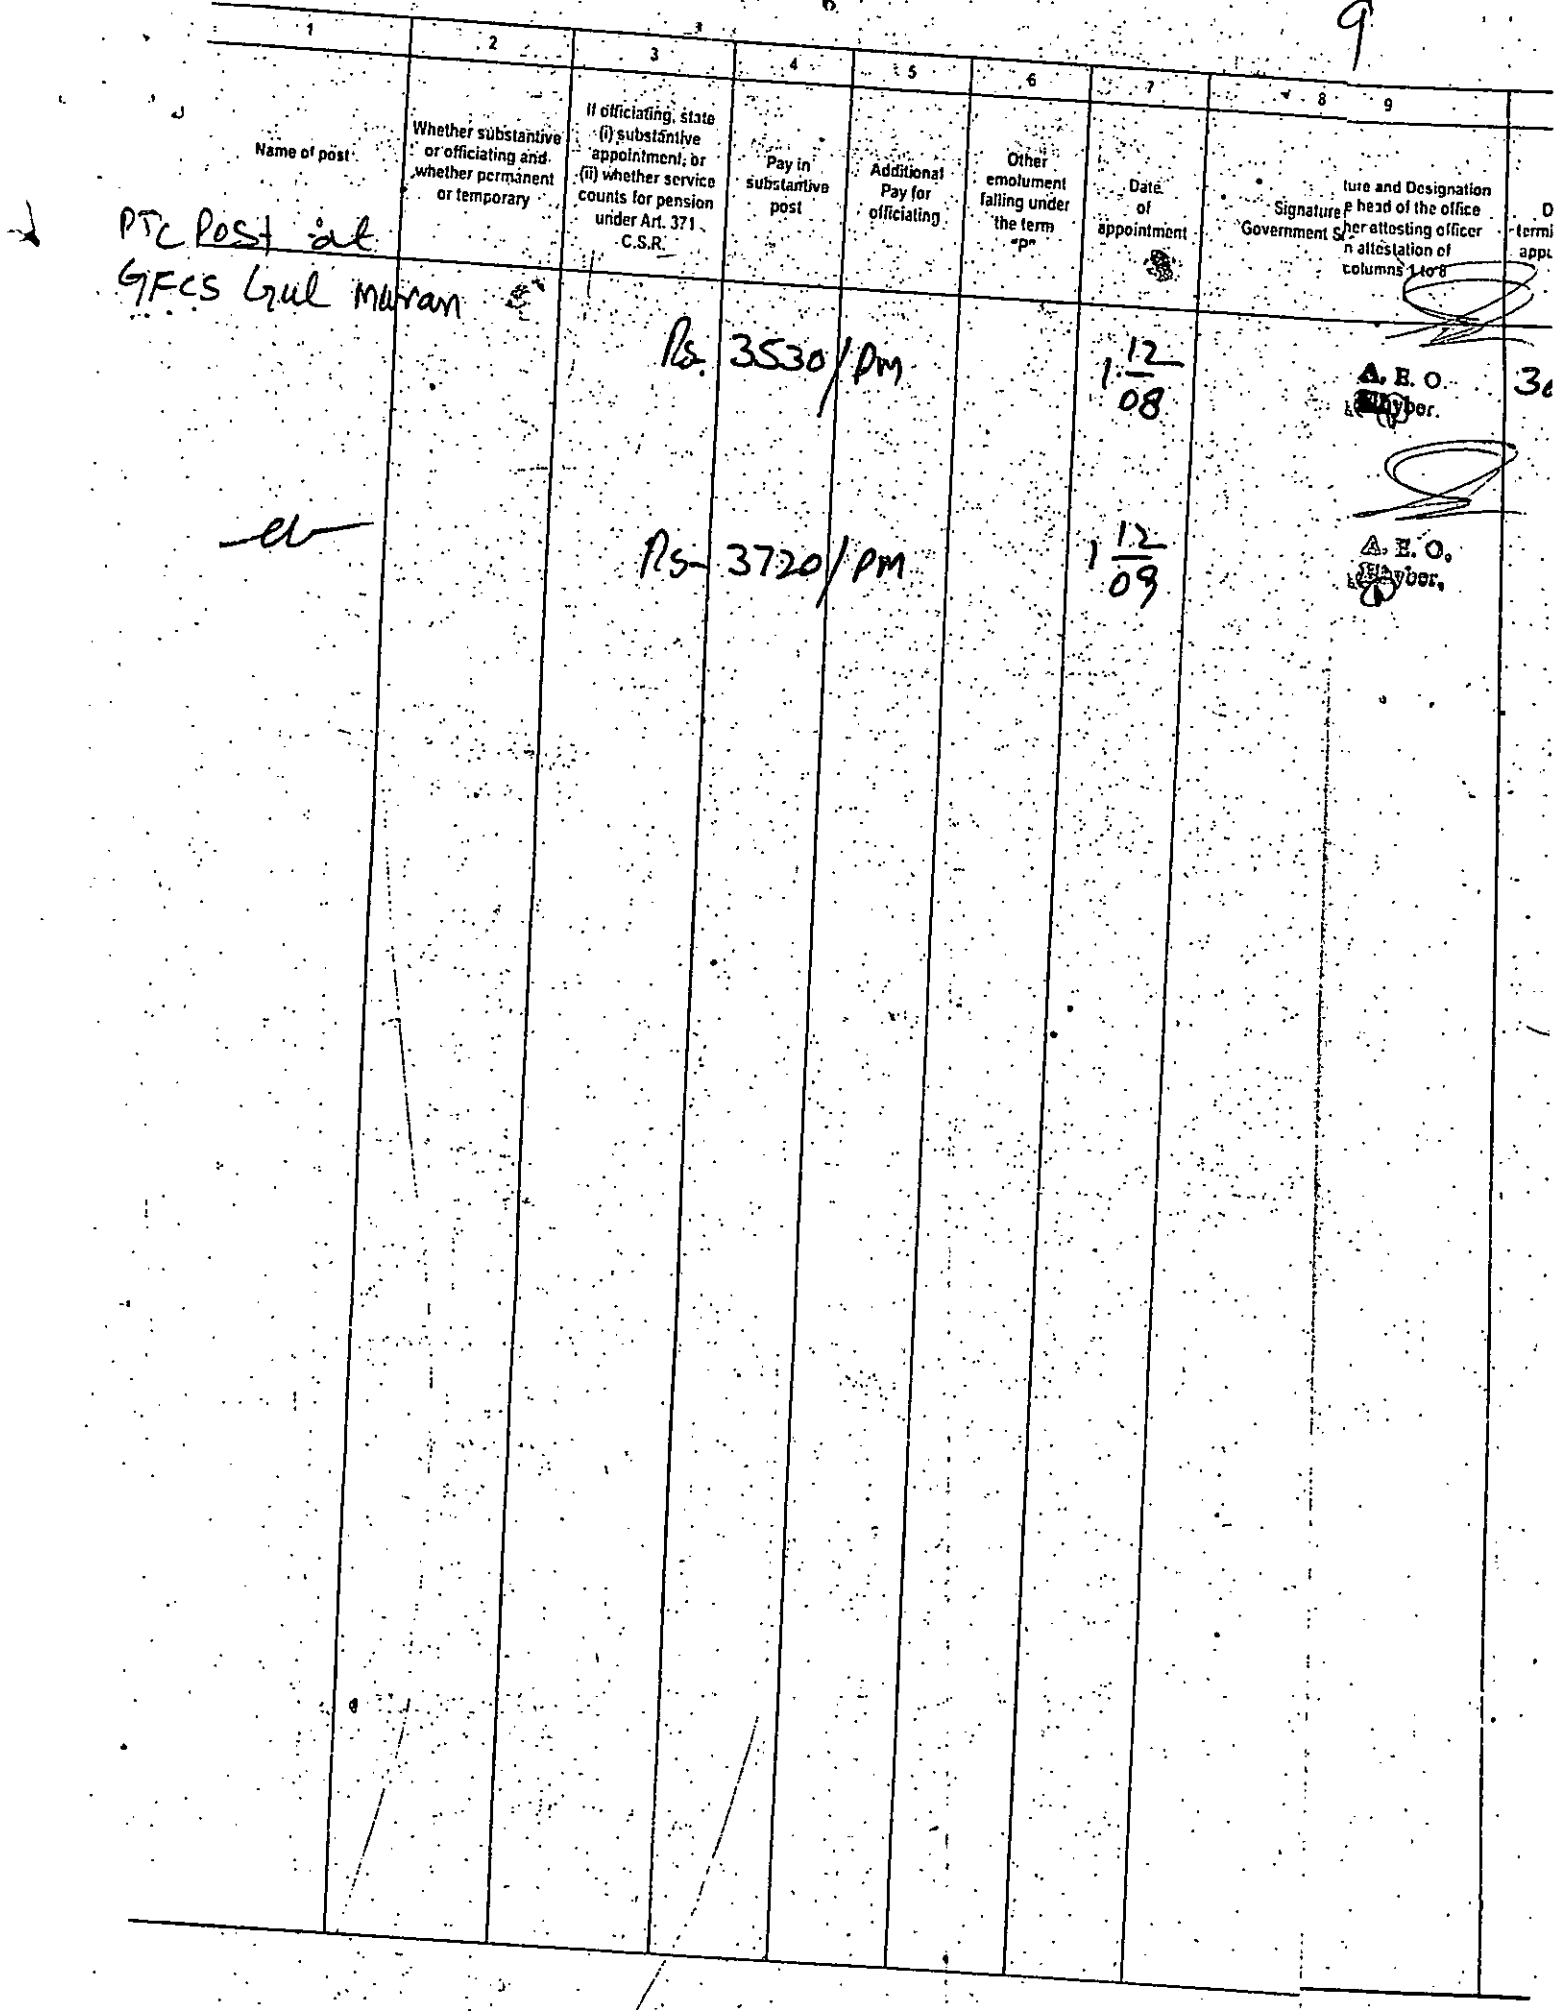 9
1 2 3 4 5 6 7 8 9
Name of post
Whether substantive
or officiating and
whether permanent
or temporary
If officiating, state
(i) substantive
appointment, or
(ii) whether service
counts for pension
under Art. 371
C.S.R.
Pay in
substantive
post
Additional
Pay for
officiating
Other
emolument
falling under
the term
"P"
Date
of
appointment
Signature
Government S
ture and Designation
e head of the office
her attesting officer
n attestation of
columns 1 to 8
D
termi
appo
PTC Post at
GFCS Gul Maran
Rs. 3530/PM
1 12
08
A. E. O.
Khyber.
Rs- 3720/PM
1 12
09
A. E. O.
Khyber.